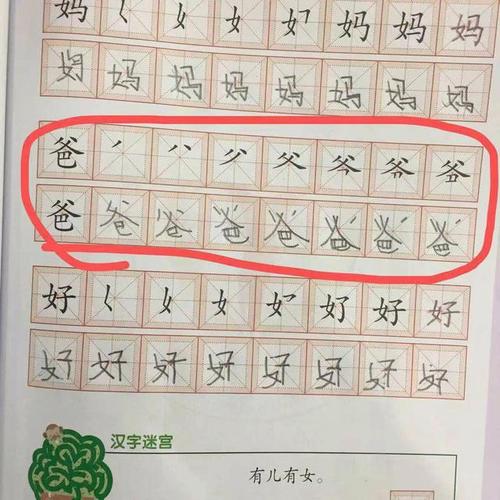 妈 女 妈 妈 妈
妈 妈 妈 妈 妈 妈 妈 妈
爸 父 爸
爸 爸 爸 爸 爸 爸 爸 爸
好 女 好 好
好 好 好 好 好 好 好 好
汉字迷宫
有儿有女。